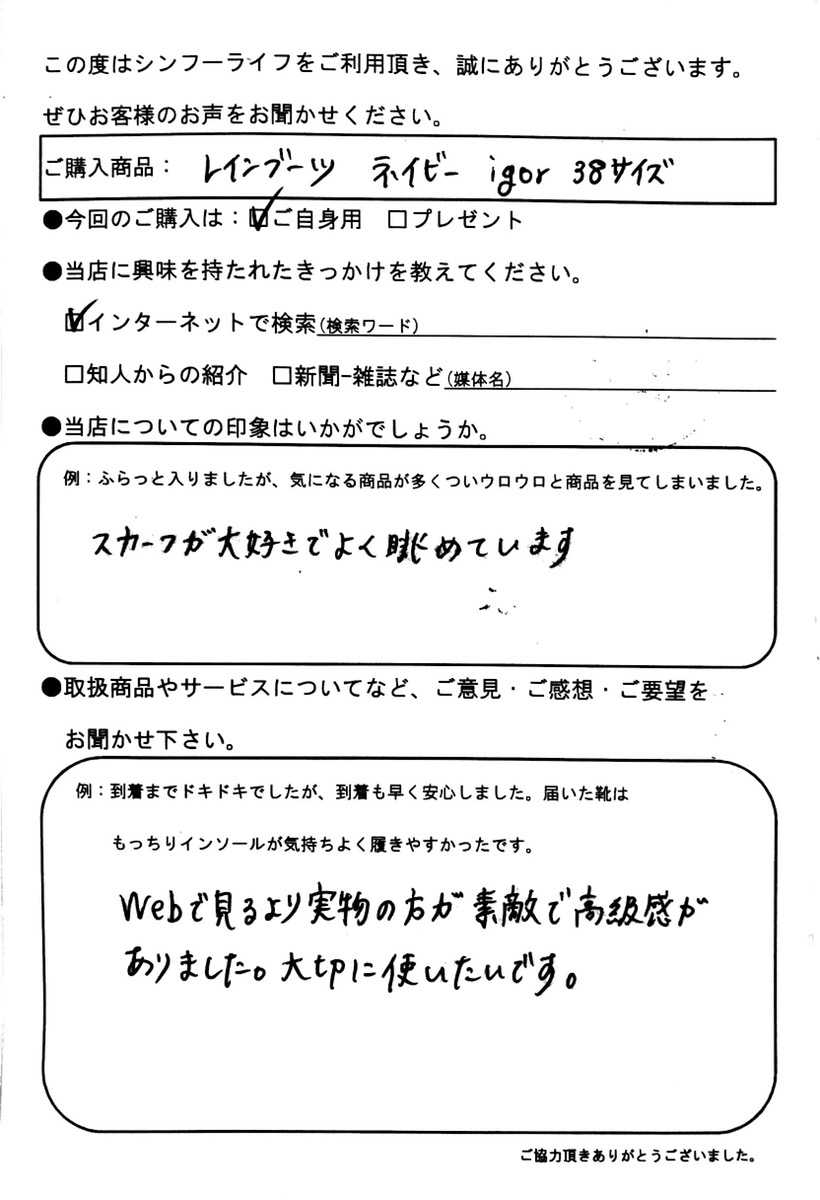 この度はシンフーライフをご利用頂き、誠にありがとうございます。
ぜひお客様のお声をお聞かせください。
ご購入商品： レインブーツ ネイビー igor 38サイズ
●今回のご購入は：☑ご自身用 □プレゼント
●当店に興味を持たれたきっかけを教えてください。
☑インターネットで検索(検索ワード)
□知人からの紹介 □新聞-雑誌など(媒体名)
●当店についての印象はいかがでしょうか。
例：ふらっと入りましたが、気になる商品が多くついウロウロと商品を見てしまいました。
スカーフが大好きでよく眺めています
●取扱商品やサービスについてなど、ご意見・ご感想・ご要望を
お聞かせ下さい。
例：到着までドキドキでしたが、到着も早く安心しました。届いた靴は
もっちりインソールが気持ちよく履きやすかったです。
Webで見るより実物の方が素敵で高級感が
ありました。大切に使いたいです。
ご協力頂きありがとうございました。